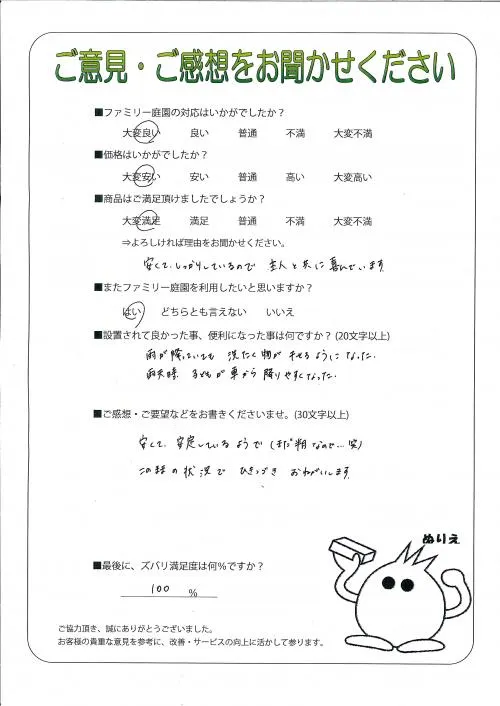 ご意見・ご感想をお聞かせください
■ファミリー庭園の対応はいかがでしたか？
大変良い 良い 普通 不満 大変不満
■価格はいかがでしたか？
大変安い 安い 普通 高い 大変高い
■商品はご満足頂けましたでしょうか？
大変満足 満足 普通 不満 大変不満
⇒よろしければ理由をお聞かせください。
安くて、しっかりしているので 主人と共に喜んでいます。
■またファミリー庭園を利用したいと思いますか？
はい どちらとも言えない いいえ
■設置されて良かった事、便利になった事は何ですか？(20文字以上)
雨が降っていても 洗たく物が干せるようになった。
雨天時、子どもが車から降りやすくなった。
■ご感想・ご要望などをお書きくださいませ。(30文字以上)
安くて、安定しているようで(まだ なので…笑)
この の状況で ひきつづき おねがいします。
ぬりえ
■最後に、ズバリ満足度は何％ですか？
100 ％
ご協力頂き、誠にありがとうございました。
お客様の貴重な意見を参考に、改善・サービスの向上に活かして参ります。